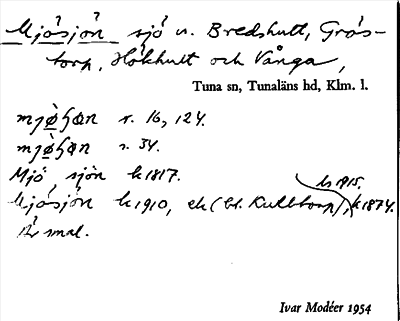 Mjösjön sjö v. Bredhult, Grös-
torp, Hökhult och Vånga,
Tuna sn, Tunaläns hd, Klm. l.
r. 16, 124.
r. 34.
Mjö sjön k 1817.
ks 1915.
Mjösjön k 1910, ek (bl. Kullbtorp), k 1874.
Är smal.
Ivar Modéer 1954